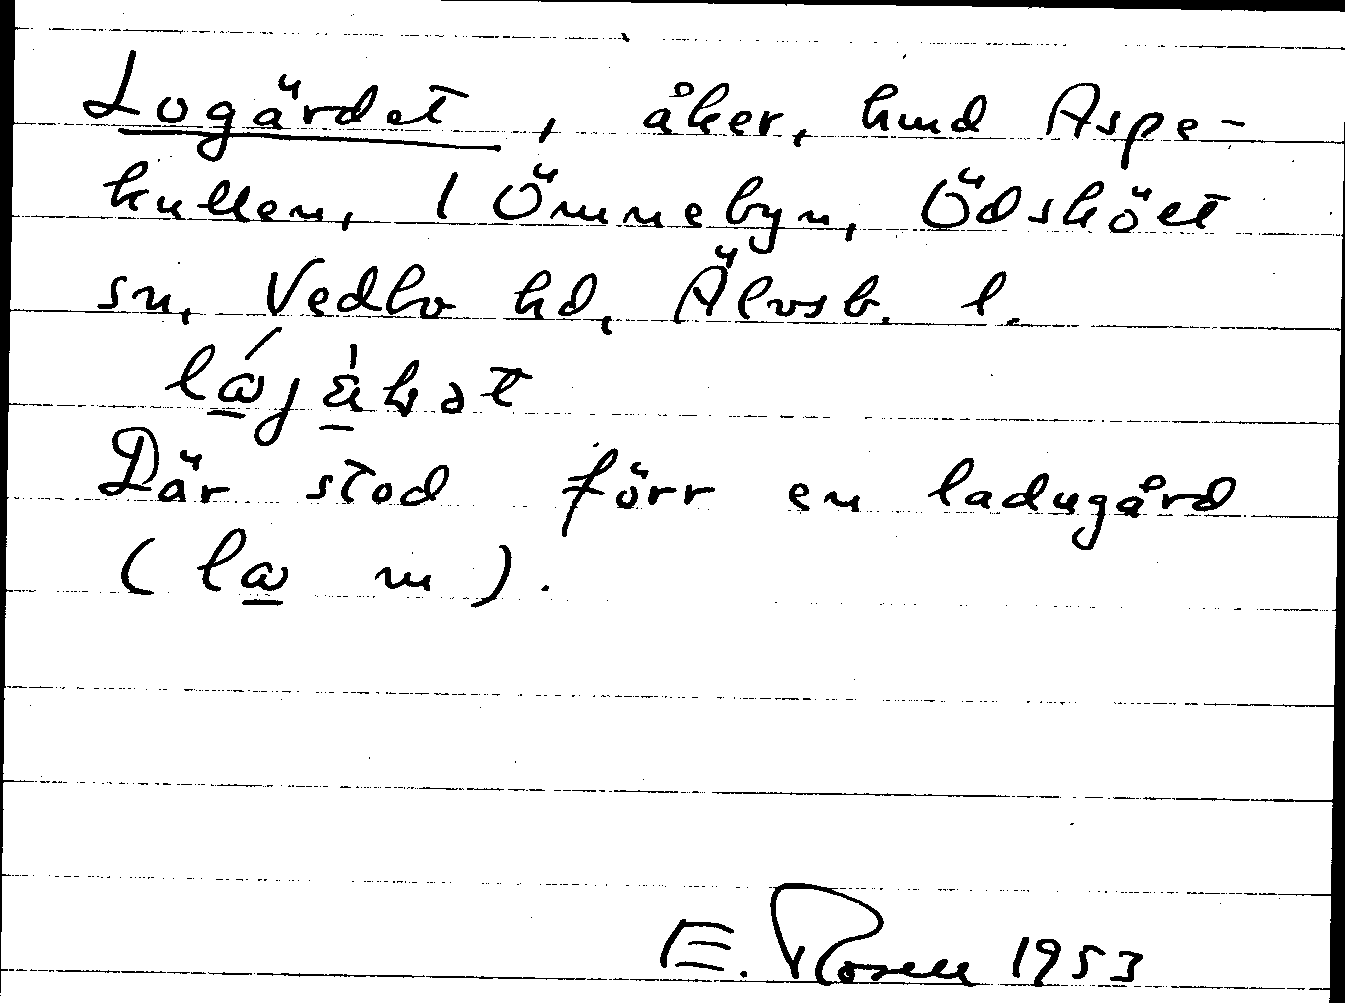 Logärdet, åker, hmd Aspe-
kullen, 1 Ömmebyn, Ödsköt
sn, Vedbo hd, Älvsb. l.
Där stod förr en ladugård
E. Rosell 1953